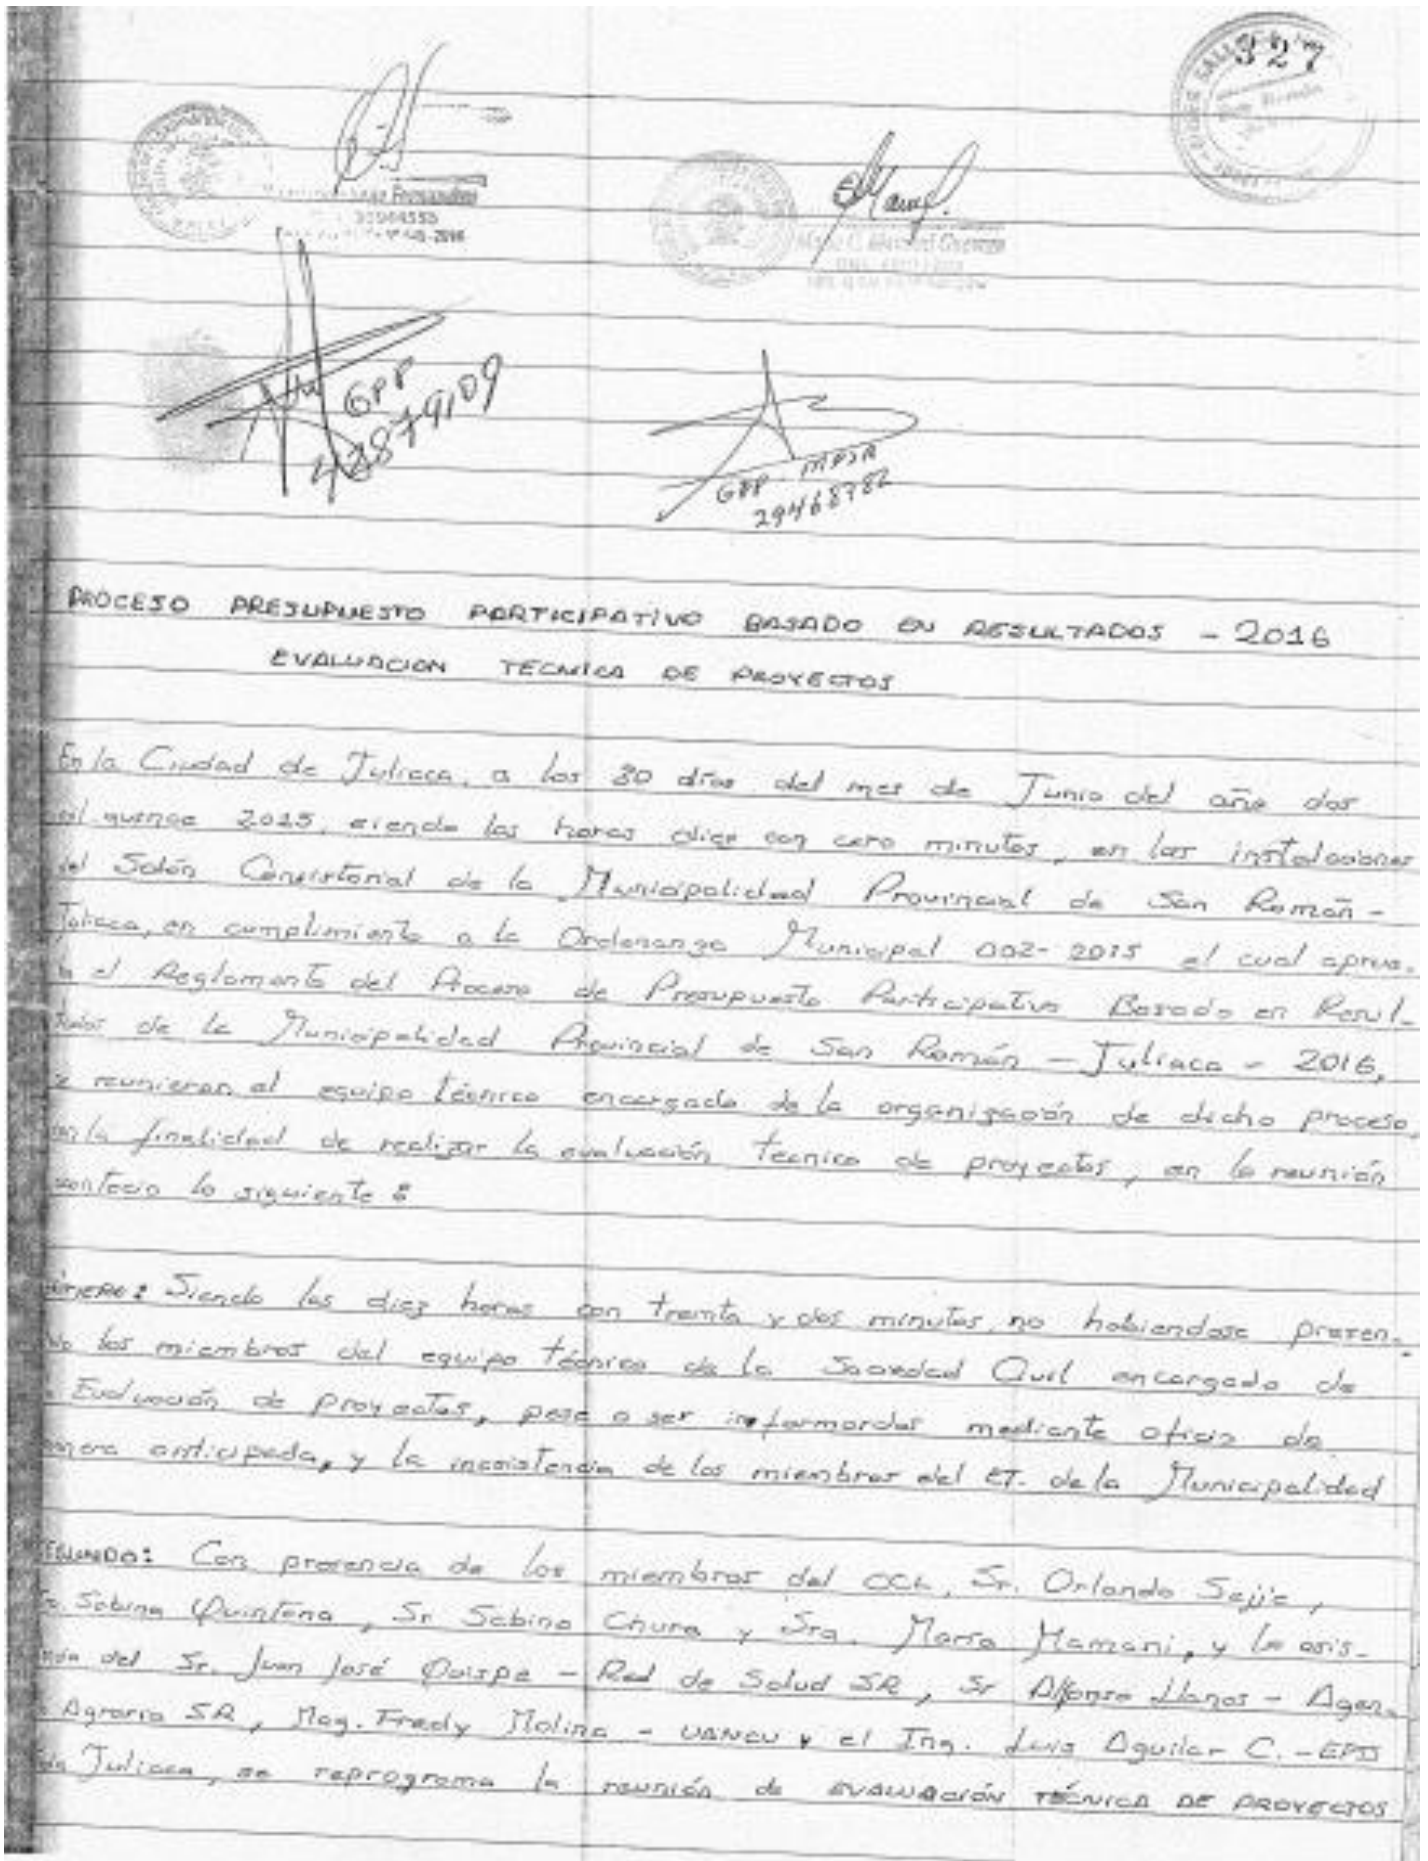 327
Fernandez
GPP
42879109
GPP. MPSR
29468782
PROCESO PRESUPUESTO PARTICIPATIVO BASADO EN RESULTADOS - 2016
EVALUACION TECNICA DE PROYECTOS
En la Ciudad de Juliaca, a los 30 días del mes de Junio del año dos
mil quince 2015, siendo las horas diez con cero minutos, en las instalaciones
del Salón Consistorial de la Municipalidad Provincial de San Román -
Juliaca, en cumplimiento a la Ordenanza Municipal 002-2015 el cual aprue-
a el Reglamento del Proceso de Presupuesto Participativo Basado en Resul-
tados de la Municipalidad Provincial de San Román - Juliaca - 2016,
se reunieron el equipo técnico encargado de la organización de dicho proceso,
con la finalidad de realizar la evaluación técnica de proyectos, en la reunión
aconteció lo siguiente:
PRIMERO: Siendo las diez horas con treinta y dos minutos, no habiendose presen-
tado los miembros del equipo técnico de la Sociedad Civil encargado de
Evaluación de proyectos, pese a ser informardos mediante oficio de
manera anticipada, y la inasistencia de los miembros del ET. de la Municipalidad
SEGUNDO: Con presencia de los miembros del CCL, Sr. Orlando
Sabina Quintana, Sr Sabino Chura y Sra. María Mamani, y la asis-
tencia del Sr. Juan José Quispe - Red de Salud SR, Sr Alfonso Llanos - Agen-
Agraria SR, Mag. Fredy Molina - UANCV y el Ing. Luis Aguilar C. - EPS
Juliaca, se reprograma la reunión de EVALUACIÓN TÉCNICA DE PROYECTOS